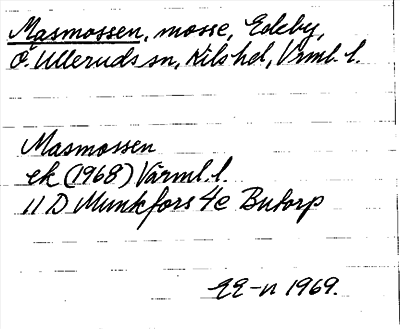 Masmossen, mosse, Edeby,
Ö. Ulleruds sn, Kils hd, Vrml. l.
Masmossen
ek (1968) Värml. l.
11 D Munkfors 4e Butorp
1969.